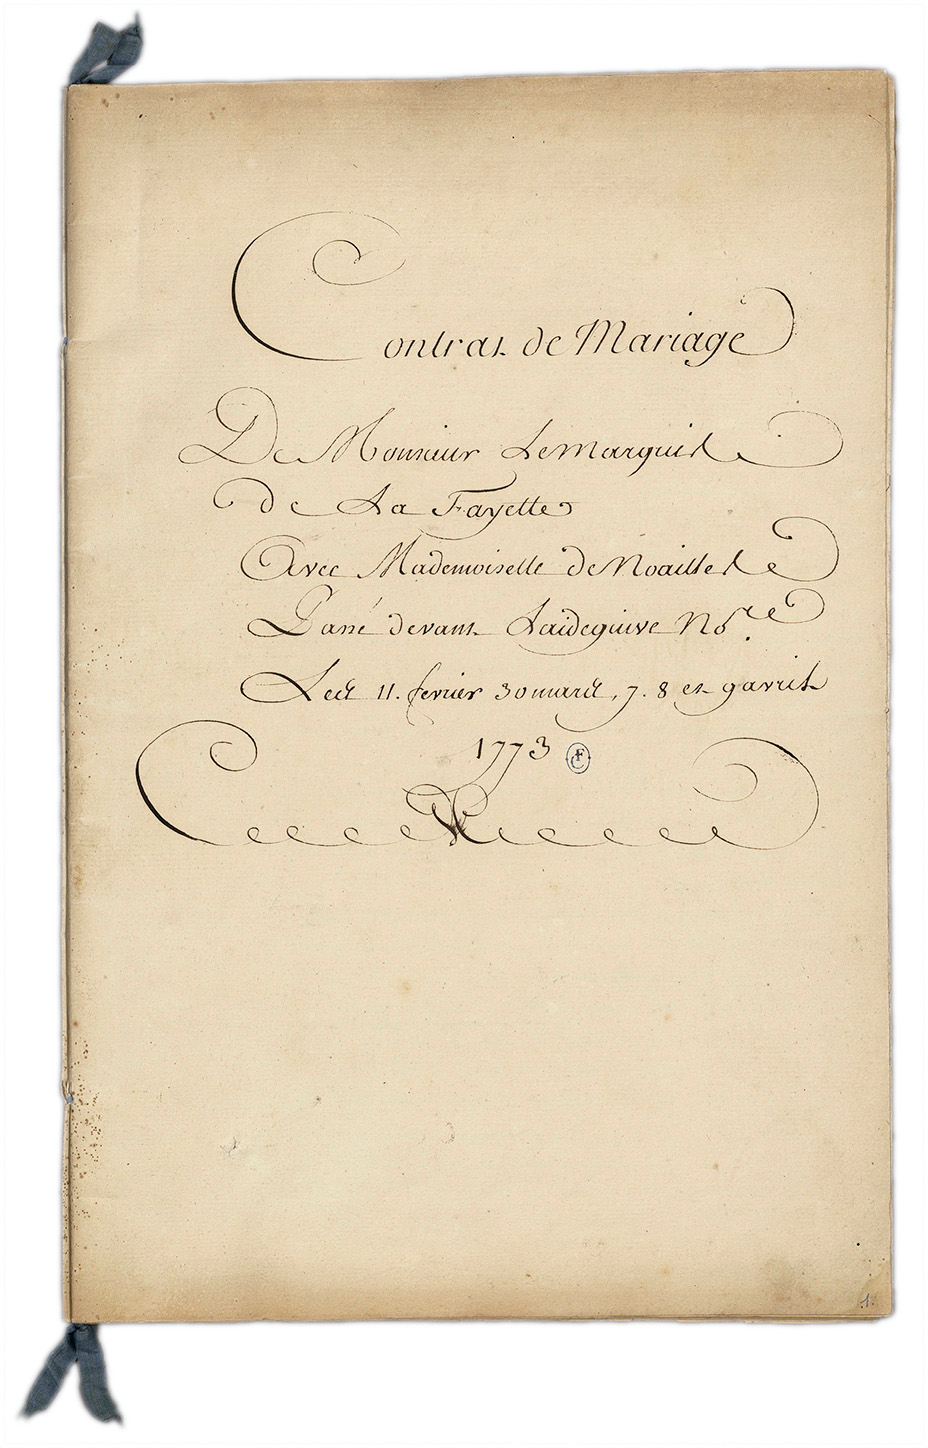 Contrat de Mariage
De Monsieur Le Marquis
de La Fayette
Avec Mademoiselle de Noailles
Passé devant Laideguive No.re
Les 11. fevrier 30 mars, 7. 8 et 9 avril
1773
1.